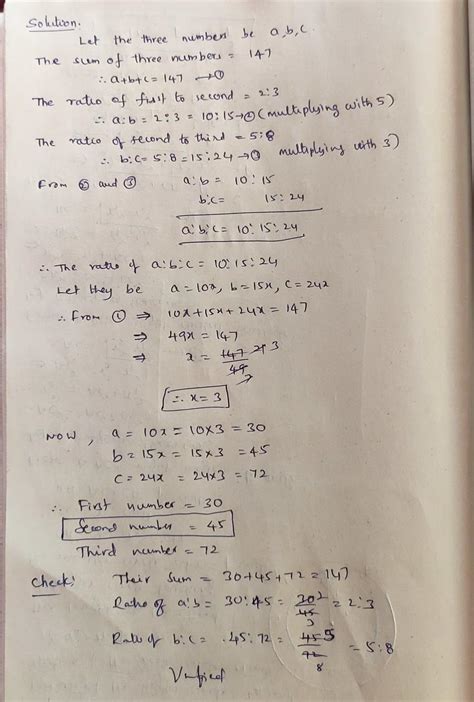 Solution.
Let the three numbers be a,b,c.
The sum of three numbers = 147
∴ a+b+c = 147 → ①
The ratio of first to second = 2:3
∴ a:b = 2:3 = 10:15 → ② (multiplying with 5)
The ratio of second to third = 5:8
∴ b:c = 5:8 = 15:24 → ③ multiplying with 3)
From ② and ③ a:b = 10:15
b:c = 15:24
a:b:c = 10:15:24
∴ The ratio of a:b:c = 10:15:24
Let they be a = 10x, b = 15x, c = 24x
∴ From ① ⇒ 10x+15x+24x = 147
⇒ 49x = 147
⇒ x = 147/49 3
∴ x = 3
Now, a = 10x = 10×3 = 30
b = 15x = 15×3 = 45
c = 24x = 24×3 = 72
∴ First number = 30
Second number = 45
Third number = 72
Check: Their sum = 30+45+72 = 147
Ratio of a:b = 30:45 = 30 2/45 3 = 2:3
Ratio of b:c = 45:72 = 45 5/72 8 = 5:8
Verified